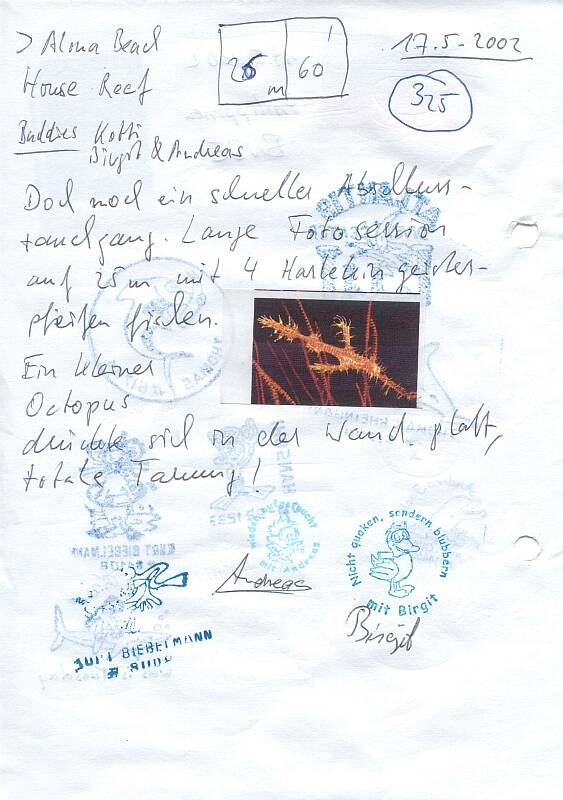 > Alona Beach
House Reef
25 m
60'
17.5-2002
325
Buddies Kotti
Birgit & Andreas
Doch noch ein schneller Abschluss-
tauchgang. Lange Fotosession
auf 25m mit 4 Harlekingeister-
pfeifenfischen.
Ein kleiner
Octopus
drückte sich in der Wand platt,
totale Tarnung!
mit Andreas
Andreas
Nicht quaken, sondern blubbern
mit Birgit
Birgit
KURT BIEBELMANN
# 8108